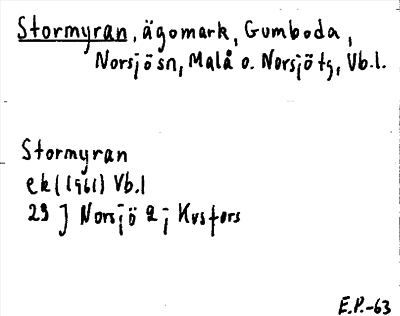 Stormyran, ägomark, Gumboda,
Norsjö sn, Malå o. Norsjö tg, Vb.l.
Stormyran
ek (1961) Vb.l
23 J Norsjö 2 j Kvsfors
E.P.-63